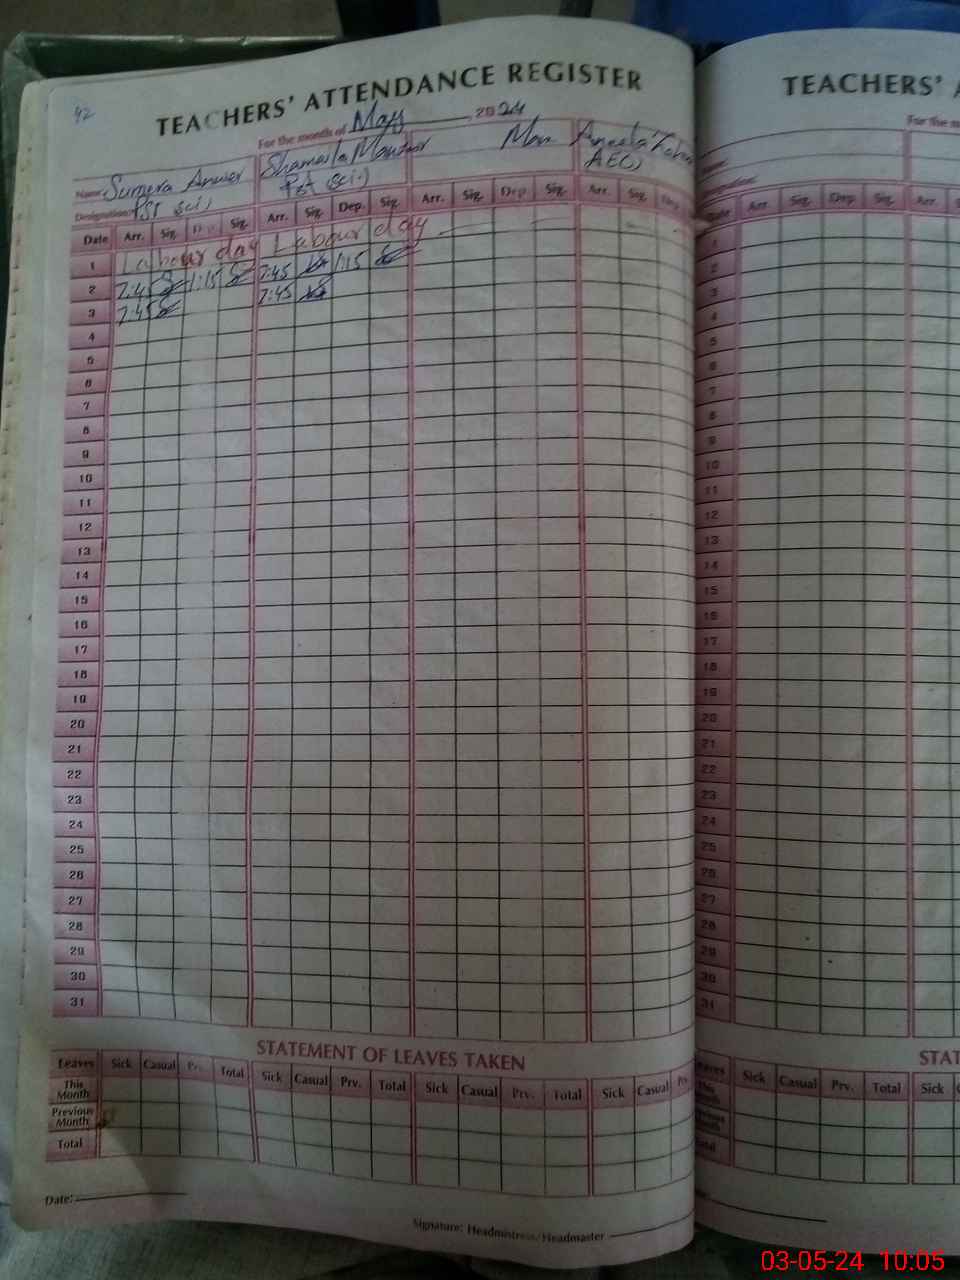 42
TEACHERS' ATTENDANCE REGISTER
For the month of May, 2024
Name: Sumera Anwer Shamaila Manzoor
Designation: PST (sci) Pst (sci) AEO
Date Arr. Sig. Dep. Sig. Arr. Sig. Dep. Sig. Arr. Sig. Dep. Sig. Arr. Sig. Dep.
1 Labour day Labour day
2 7:45 1:15 7:45 1:15
3 7:45 7:45
4
5
6
7
8
9
10
11
12
13
14
15
16
17
18
19
20
21
22
23
24
25
26
27
28
29
30
31
STATEMENT OF LEAVES TAKEN
Leaves Sick Casual Prv. Total Sick Casual Prv. Total Sick Casual Prv. Total Sick Casual
This Month
Previous Month
Total
Date:
Signature: Headmistress/Headmaster
TEACHERS'
For the
Arr. Sig. Dep. Sig. Arr.
2
3
4
5
6
7
8
9
10
11
12
13
14
15
16
17
18
19
20
21
22
23
24
25
26
27
28
29
30
31
STAT
Sick Casual Prv. Total Sick
03-05-24 10:05